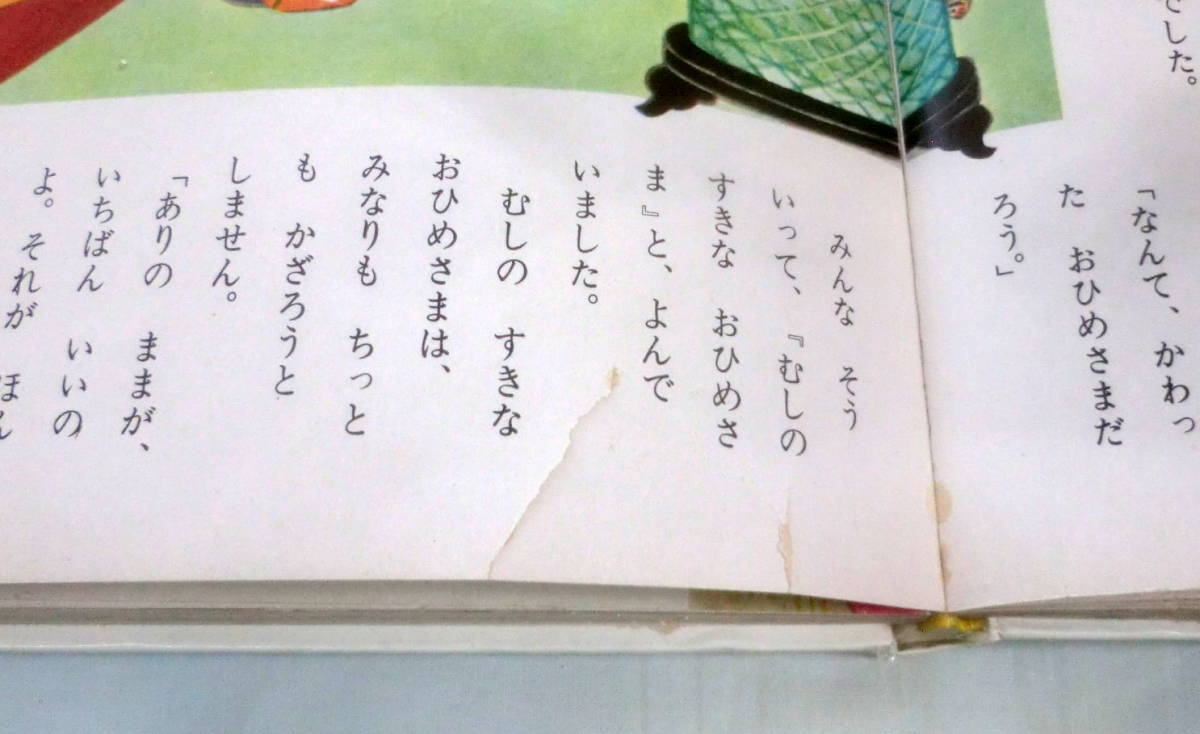 でした。
「なんて、かわっ
た　おひめさまだ
ろう。」
みんな　そう
いって、『むしの
すきな　おひめさ
ま』と、よんで
いました。
むしの　すきな
おひめさまは、
みなりも　ちっと
も　かざろうと
しません。
「ありの　ままが、
いちばん　いいの
よ。それが